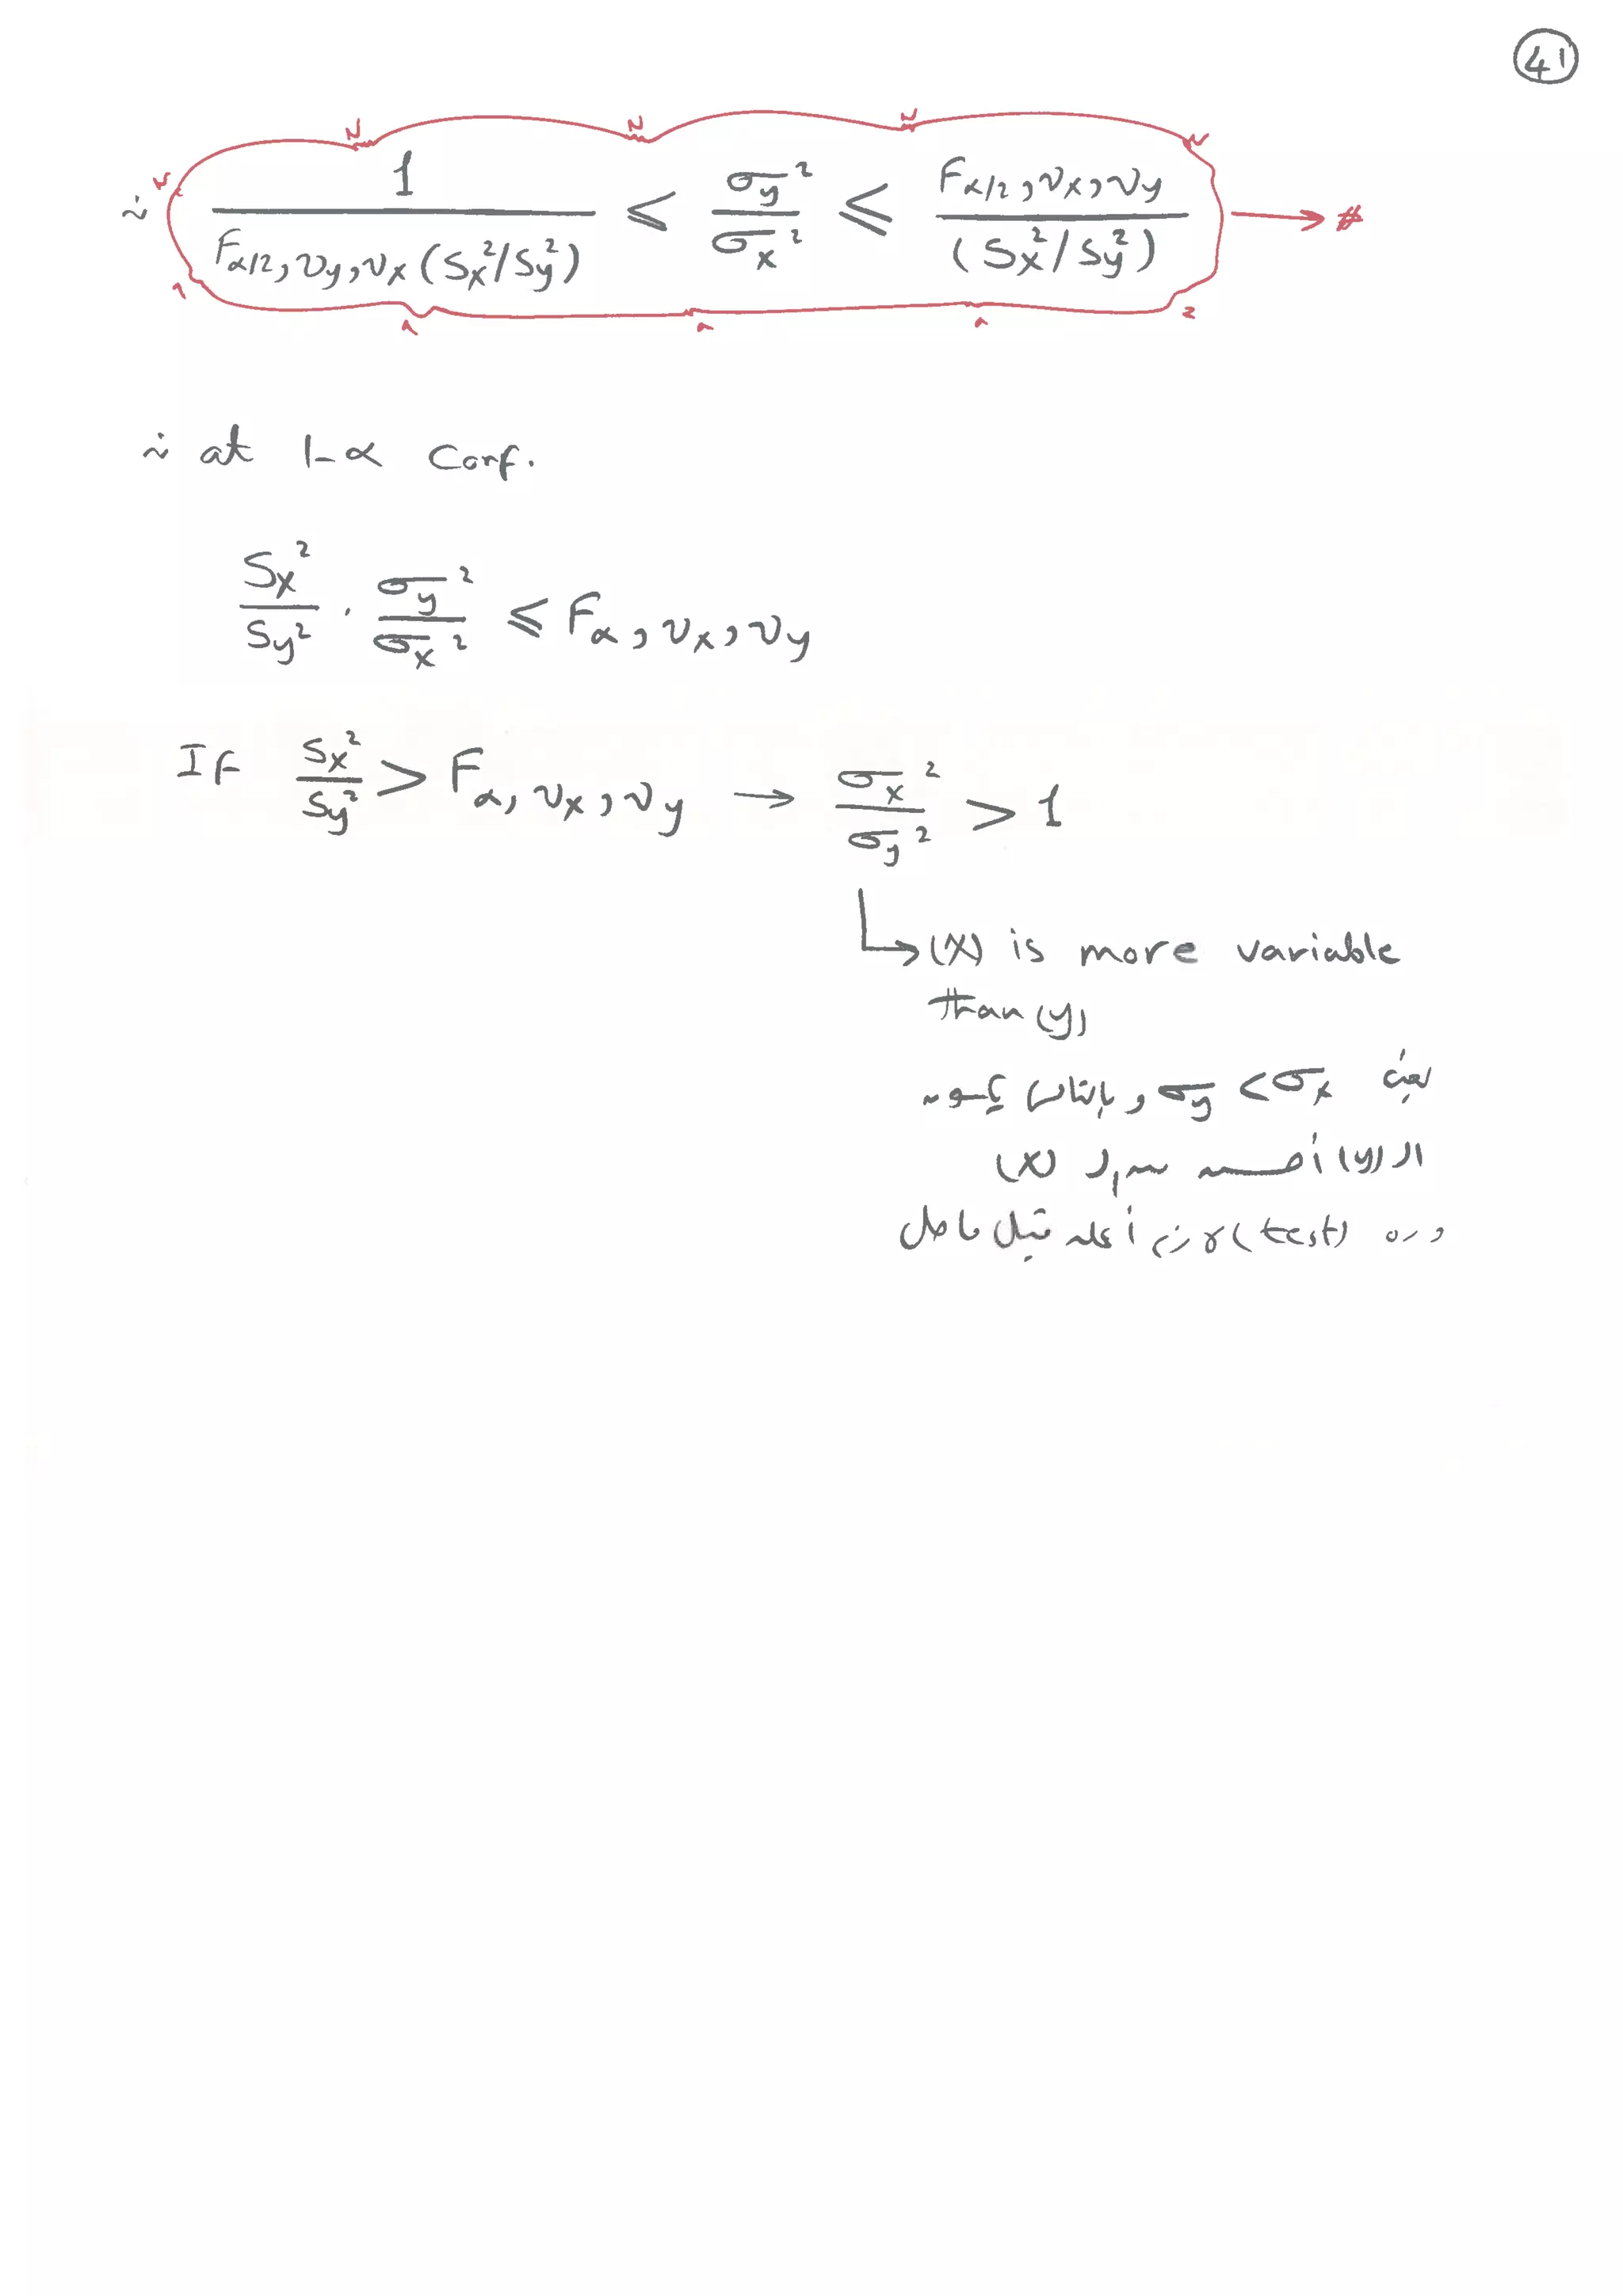 41
∴ 1 / (F_{α/2, νy, νx} (Sx²/Sy²)) ≤ σy²/σx² ≤ F_{α/2, νx, νy} / (Sx²/Sy²) → #
∴ at 1-α Conf.
Sx²/Sy² · σy²/σx² ≤ F_{α, νx, νy}
IF Sx²/Sy² > F_{α, νx, νy} → σx²/σy² > 1
↳ (X) is more variable
than (y)
يعني σy < σx و بالتالي يكون
الـ (y) أحسن من الـ (X)
وده (test) لازم أعمله قبل ما